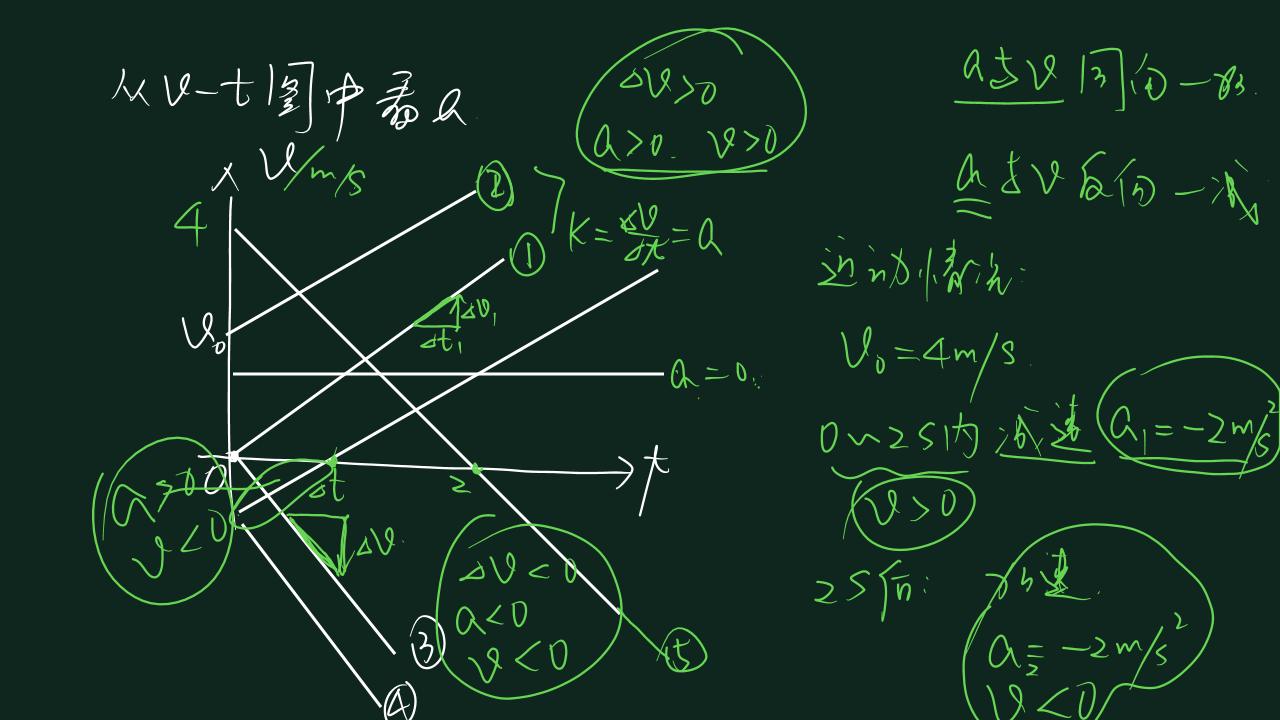 从v-t图中看a
v/m/s
4
②
①
v₀
k=Δv/Δt=a
Δv₁
Δt₁
a=0
0
Δt
2
t
Δv
③
④
⑤
Δv>0
a>0. v>0
a>0
v<0
Δv<0
a<0
v<0
a与v同向—加
a与v反向—减
运动情况:
v₀=4m/s
0~2s内减速 a₁=-2m/s²
v>0
2s后: 加速
a₂=-2m/s²
v<0